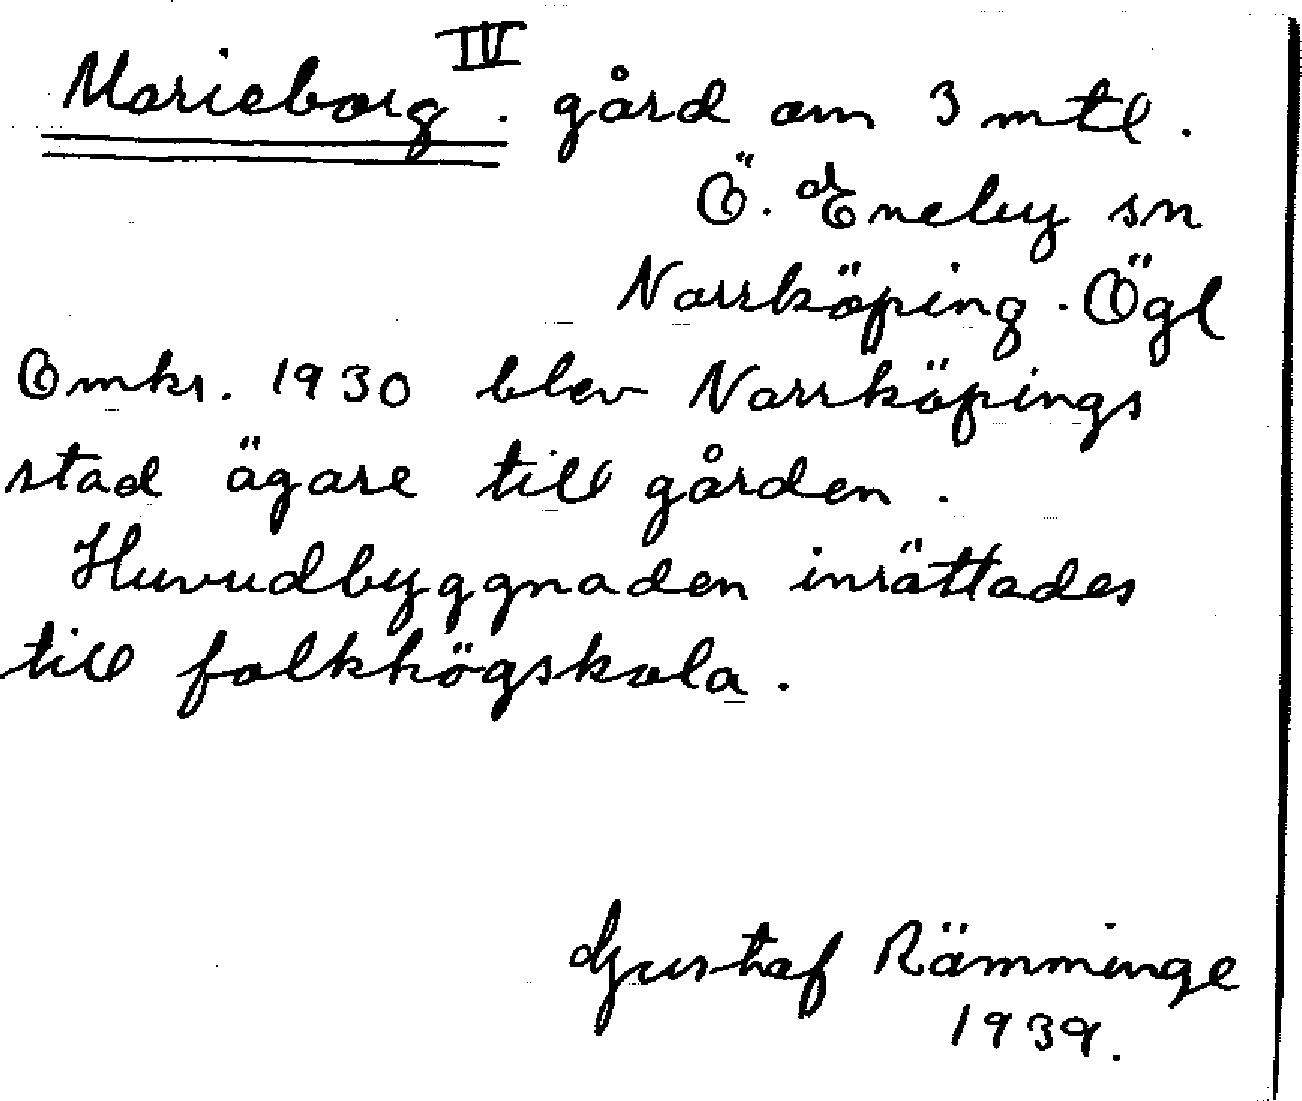 Marieborg IV. gård om 3 mtl.
Ö. Eneby sn
Norrköping. Ögl
Omkr. 1930 blev Norrköpings
stad ägare till gården.
Huvudbyggnaden inrättades
till folkhögskola.
Gustaf Rämminge
1939.